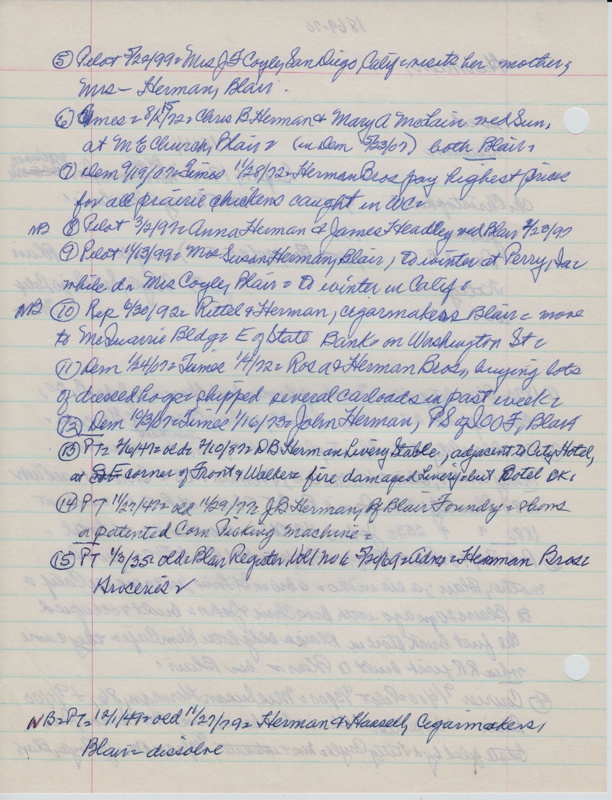 ⑤ Pilot 7/20/99 = Mrs J F Coyle, San Diego, Calif = visits her mother,
Mrs - Herman, Blair.
⑥ Times = 8/15/72 = Chris B. Herman & Mary A McLain wed Sun,
at M E Church, Blair = (in Dem 5/23/07) both Blair =
⑦ Dem 9/19/07 = Times 11/28/72 = Herman Bros pay highest prices
for all prairie chickens caught in WC =
NB ⑧ Pilot 3/2/97 = Anna Herman & James Headley wed Blair 2/23/97
⑨ Pilot 11/13/99 = Mrs Susan Herman, Blair, to winter at Perry, Ia =
while da Mrs Coyle, Blair = to winter in Calif =
NB ⑩ Rep 6/30/92 = Rittel & Herman, cigarmakers Blair = move
to McQuarrie Bldg = E of State Bank = on Washington St =
⑪ Dem 1/24/07 = Times 1/4/72 = Rosa & Herman Bros, buying lots
of dressed hogs = shipped several carloads in past week =
⑫ Dem 10/3/07 = Times 1/16/73 = John Herman, PS of IOOF, Blair
⑬ PT = 2/6/47 = old = 2/10/87 = DB Herman Livery Stable, adjacent to City Hotel,
at corner of Front & Walker = fire damaged Livery but Hotel OK =
⑭ PT 11/27/47 = old 11/29/77 = J.B Herman, of Blair Foundry = shows
a patented Corn Picking machine =
⑮ PT 1/3/35 = old = Blair Register Vol 1 No 6 5/20/69 = adv = Herman Bros =
Groceries =
NB = PT = 12/1/49 = old 11/27/79 = Herman & Hassell, Cigarmakers,
Blair = dissolve